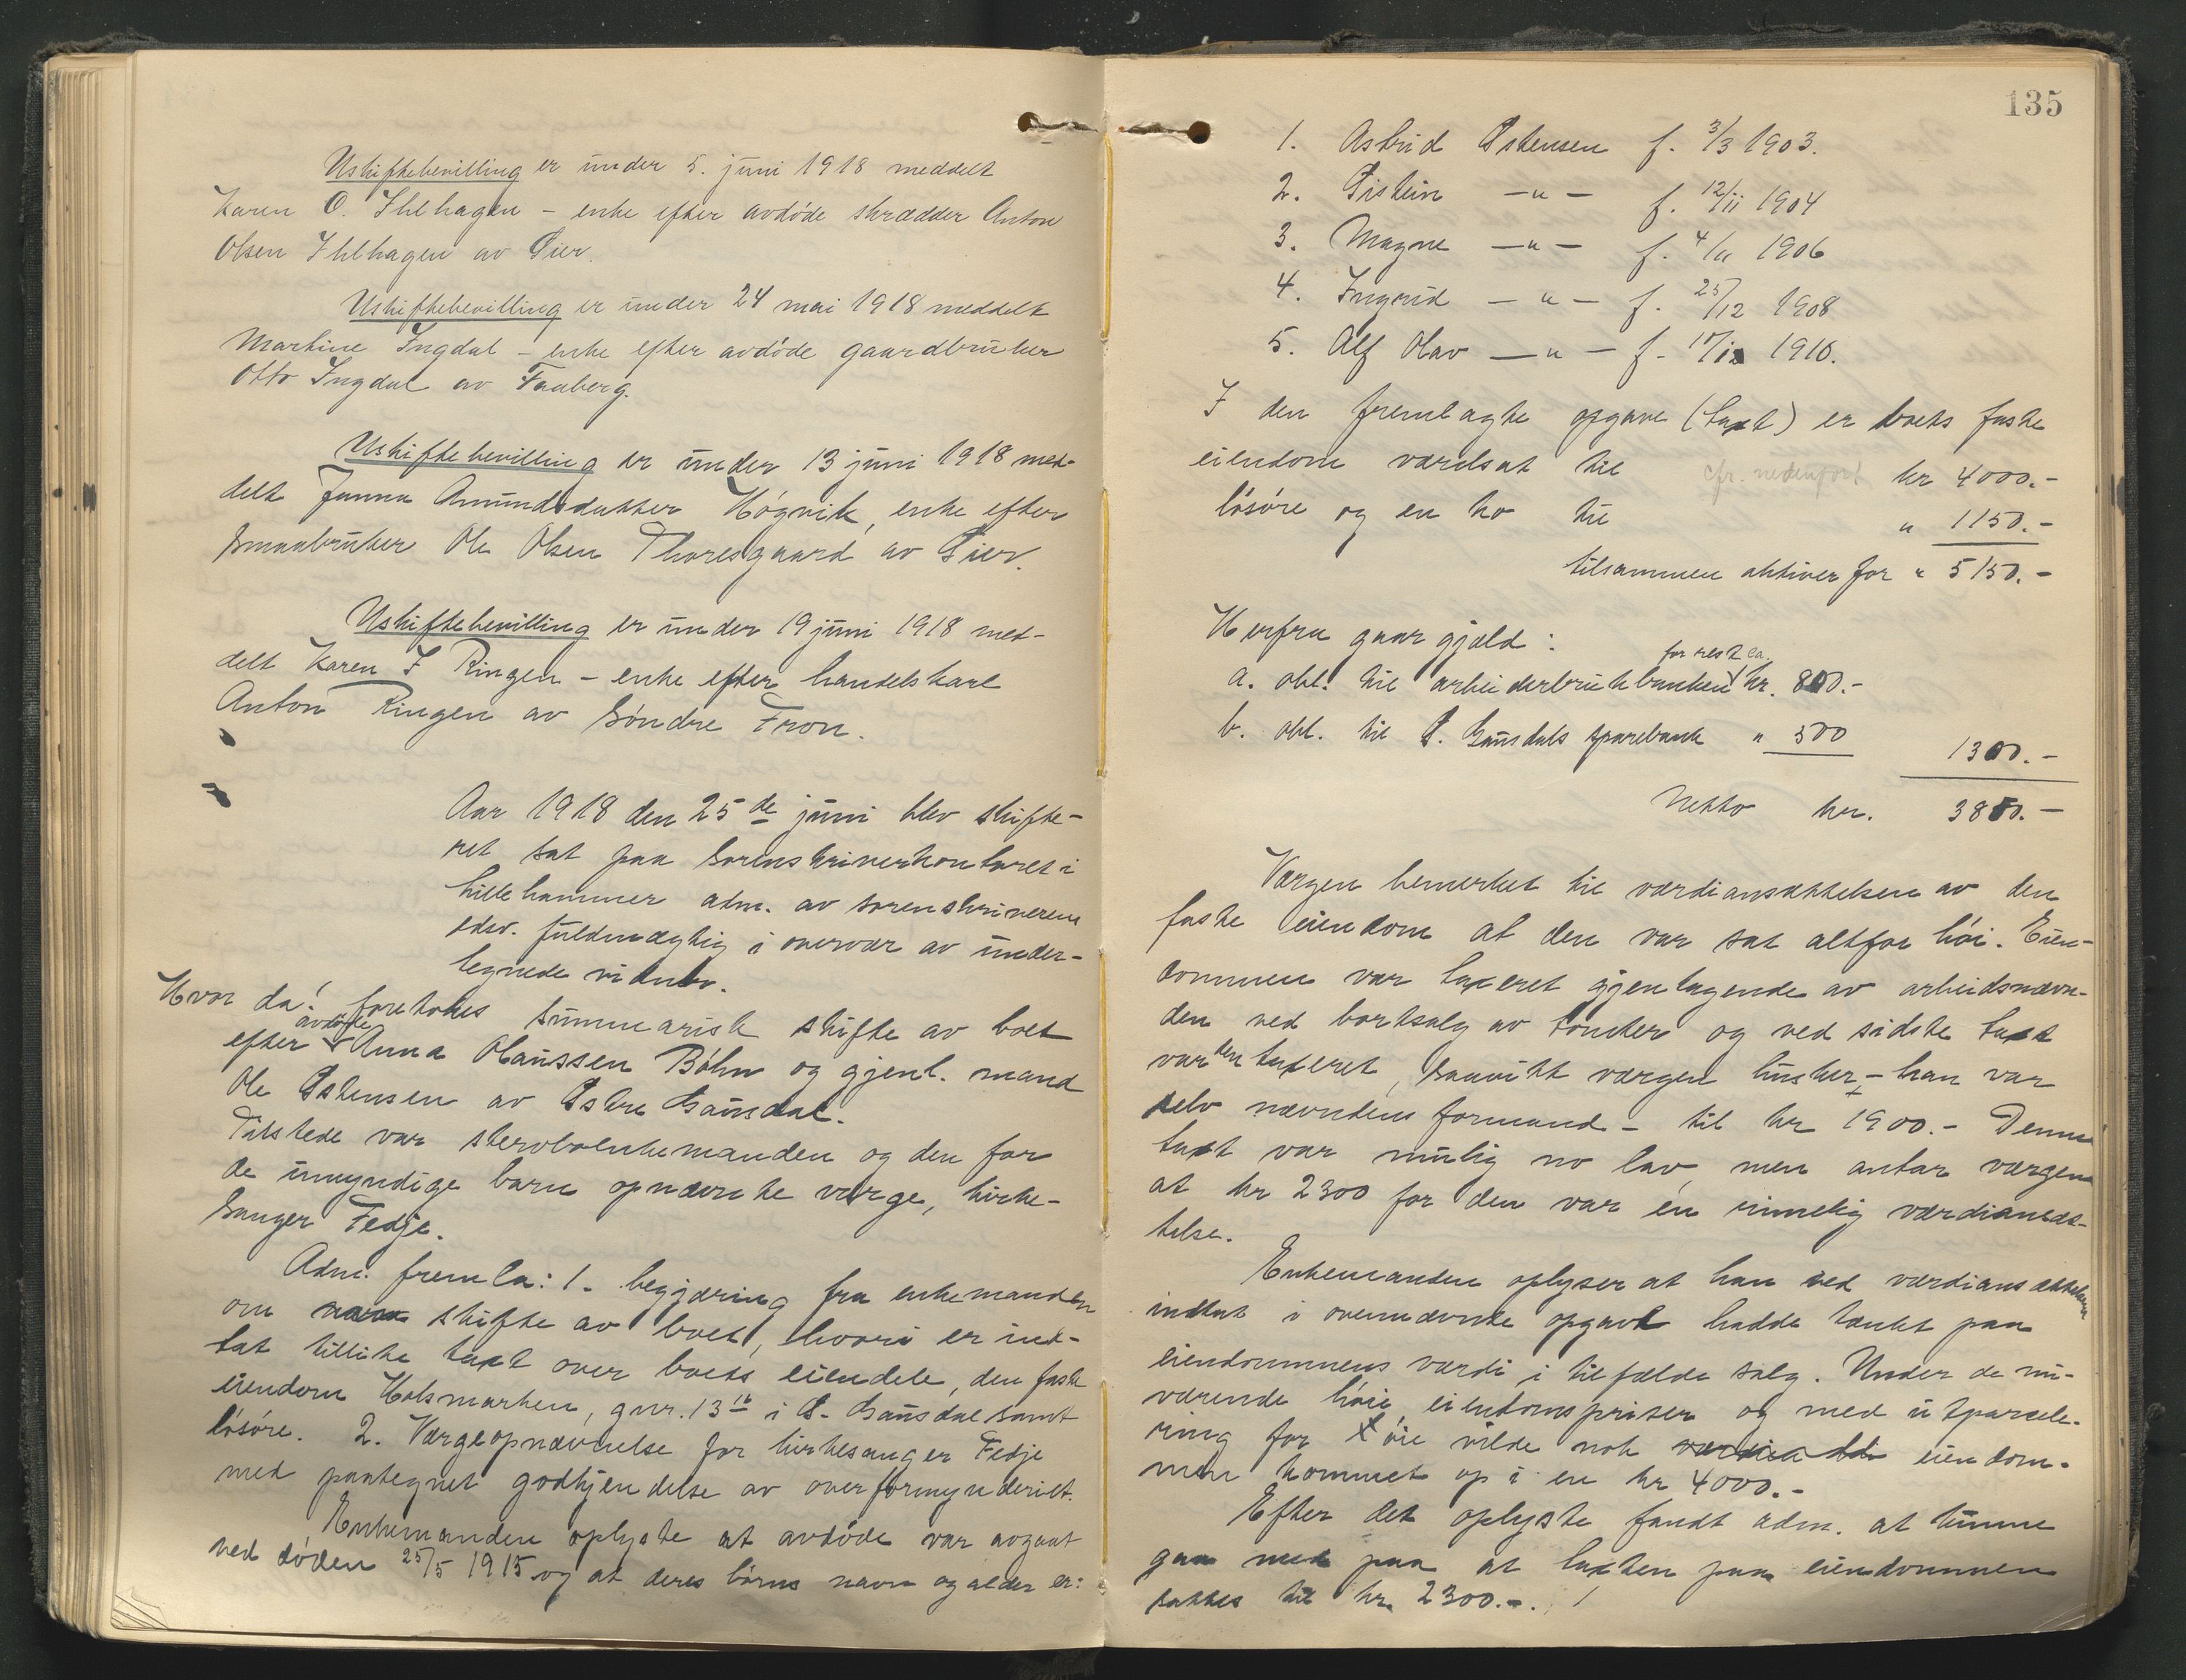 Uskiftebevilling er under 5. juni 1918 meddelt
Karen O. Ihlhagen - enke efter avdøde skrædder Anton
Olsen Ihlhagen av Øier.
Uskiftebevilling er under 24 mai 1918 meddelt
Martine Ingdal - enke efter avdøde gaardbruker
Otto Ingdal av Faaberg.
Uskiftebevilling er under 13 juni 1918 med-
delt Janna Amundsdatter Høgvik, enke efter
smaabruker Ole Olsen Thoresgaard av Øier.
Uskiftebevilling er under 19 juni 1918 med-
delt Karen J Ringen - enke efter handelskarl
Anton Ringen av Søndre Fron.
Aar 1918 den 25de juni blev skifte-
ret sat paa sorenskriverkontoret i
Lillehammer adm. av sorenskriverens
edsv. fuldmægtig i overvær av under-
tegnede vidner.
Hvor da! foretokes summarisk skifte av boet
efter avdøde Anna Olaussen Bøhn og gjenl. mand
Ole Østensen av Østre Gausdal.
Tilstede var stervboenkemanden og den for
de umyndige barn opnævnte verge, kirke-
sanger Fedje.
Adm. fremla: 1. begjæring fra enkemanden
om skifte av boet, hvori er ind-
tat tillike taxt over boets eiendele, den faste
eiendom Holsmarken, gnr. 13 16 i Ø. Gausdal samt
løsøre. 2. Værgeopnævnelse for kirkesanger Fedje
med paategnet godkjendelse av overformynderiet.
Enkemanden oplyste at avdøde var avgaat
ved døden 25/5 1915 og at deres børns navn og alder er:
135
1. Astrid Østensen f. 3/3 1903.
2. Øistein -"- f. 12/11 1904
3. Magne -"- f. 4/11 1906
4. Ingrid -"- f. 25/12 1908
5. Alf Olav -"- f. 17/12 1910.
I den fremlagte opgave (taxt) er boets faste
eiendom værdsat til cfr. nedenfor! kr 4000.-
løsøre og en ko til " 1150.-
tilsammen aktiver for " 5150.-
Herfra gaar gjæld:
for rest ca.
a. obl. til arbeiderbrukbanken kr. 800.-
b. obl. til Ø. Gausdals sparebank " 500 1300.-
Netto kr. 3850.-
Værgen bemerket til værdiansættelsen av den
faste eiendom at den var sat altfor høi. Eien-
dommen var taxeret gjentagende av arbeidsnævn-
den ved bortsalg av tomter og ved sidste taxt
var den taxeret, saavidt værgen husker - han var
selv nævndens formand - til kr 1900.- Denne
taxt var mulig no lav, men antar værgen
at kr 2300 for den var en rimelig værdiansæt-
telse.
Enkemanden oplyser at han ved værdiansættelsen
indtat i ovennævnte opgave hadde tænkt paa
eiendommens værdi i tilfælde salg. Under de nu-
værende høie eiendomspriser og med utparcele-
ring for øie vilde nok eiendom-
men kommet op i en kr 4000.-
Efter det oplyste fandt adm. at kunne
gaa med paa at taxten paa eiendommen
sættes til kr. 2300.-.